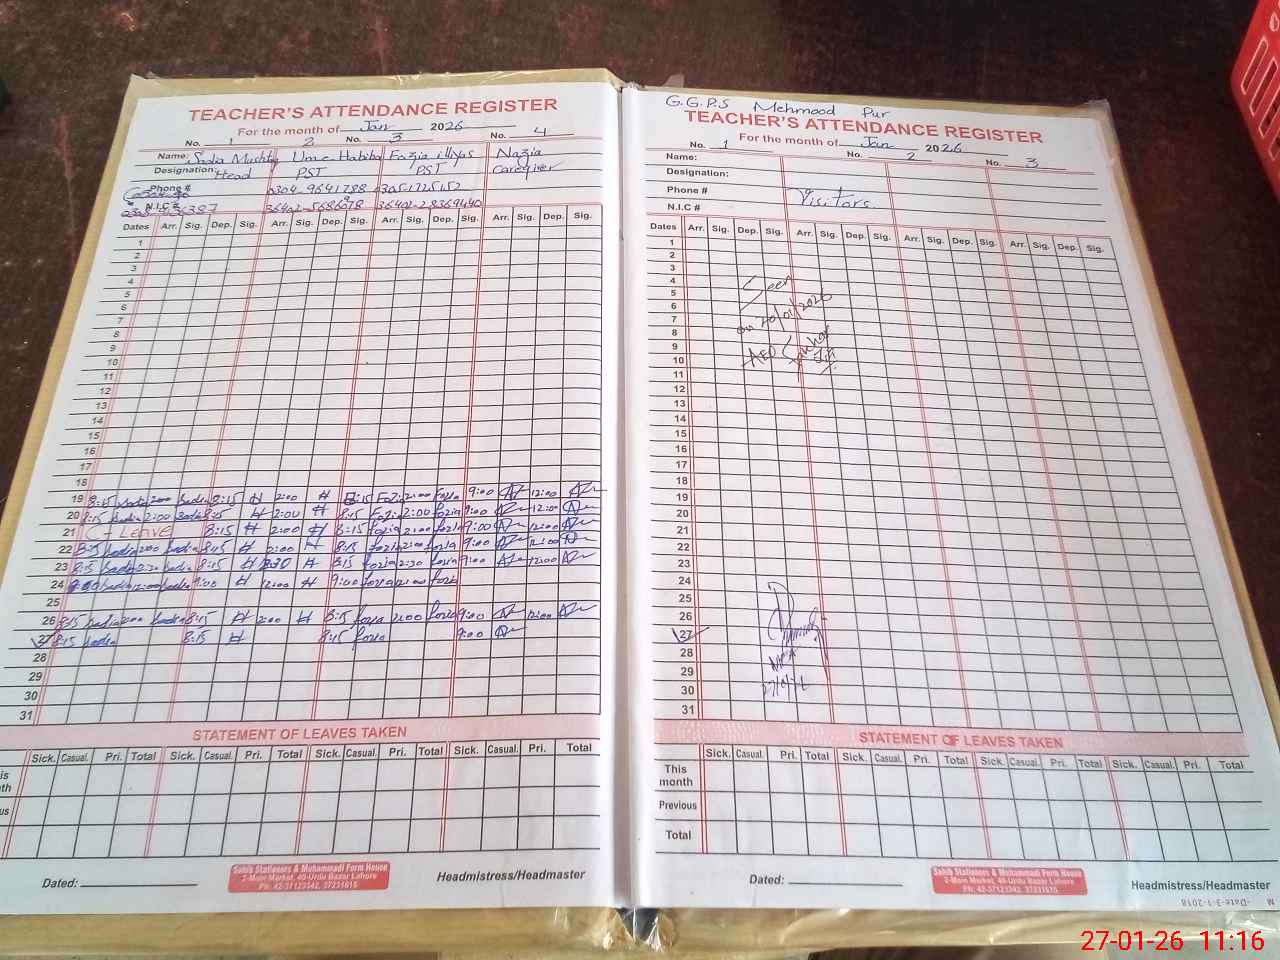 TEACHER'S ATTENDANCE REGISTER
For the month of Jan 2026
No. 1 2 No. 3 No. 4
Name: Sadia Mushtaq Ume Habiba Fozia illyas Nazia
Designation: Head PST PST Caregiver
Phone # 0304-9641788 03051725152
N.I.C # 36402-28369440
Dates Arr. Sig. Dep. Sig. Arr. Sig. Dep. Sig. Arr. Sig. Dep. Sig. Arr. Sig. Dep. Sig.
1
2
3
4
5
6
7
8
9
10
11
12
13
14
15
16
17
18
19 8:15 Sadia 2:00 Sadia 8:15 H 2:00 H 8:15 Fozia 2:00 Fozia 9:00 12:00
20 8:15 Sadia 2:00 Sadia 8:15 H 2:00 H 8:15 Fozia 2:00 fozia 9:00 12:00
21 C-Leave 8:15 H 2:00 H 8:15 fozia 2:00 fozia 9:00 12:00
22 8:15 Sadia 2:00 Sadia 8:15 H 2:00 H 8:15 fozia 2:00 fozia 9:00 12:00
23 8:15 Sadia 2:30 Sadia 8:15 H 2:30 H 8:15 fozia 2:30 fozia 9:00 12:00
24 9:00 Sadia 12:00 Sadia 9:00 H 12:00 H 9:00 fozia 12:00 fozia
25
26 8:15 Sadia 2:00 Sadia 8:15 H 2:00 H 8:15 fozia 2:00 fozia 9:00 12:00
27 8:15 Sadia 8:15 H 8:15 fozia 9:00
28
29
30
31
STATEMENT OF LEAVES TAKEN
Sick. Casual. Pri. Total Sick. Casual. Pri. Total Sick. Casual. Pri. Total Sick. Casual. Pri. Total
Dated:
Sahib Stationers & Muhammadi Form House
2-Main Market, 40-Urdu Bazar Lahore
Ph: 42-37123342, 37231615
Headmistress/Headmaster
G.G.P.S Mehmood Pur
TEACHER'S ATTENDANCE REGISTER
For the month of Jan 2026
No. 1 No. 2 No. 3
Name:
Designation:
Phone #
Visitors
N.I.C #
Dates Arr. Sig. Dep. Sig. Arr. Sig. Dep. Sig. Arr. Sig. Dep. Sig. Arr. Sig. Dep. Sig.
1
2
3
4
Seen
5
6
on 20/01/2026
7
8
AEO
9
10
11
12
13
14
15
16
17
18
19
20
21
22
23
24
25
26
27
28
29
30
27/01/26
31
STATEMENT OF LEAVES TAKEN
Sick. Casual. Pri. Total Sick. Casual. Pri. Total Sick. Casual. Pri. Total Sick. Casual. Pri. Total
This month
Previous
Total
Dated:
Sahib Stationers & Muhammadi Form House
2-Main Market, 40-Urdu Bazar Lahore
Ph: 42-37123342, 37231615
Headmistress/Headmaster
M -Date-3-1-2018
27-01-26 11:16